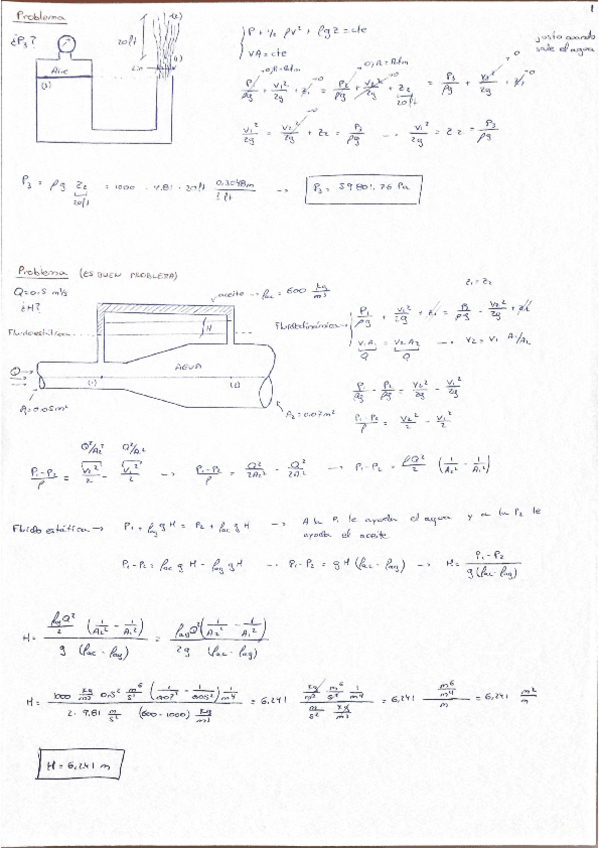 1
Problema
¿P₃?
20ft
(2)
(1)
Aire
(3)
P + ½ ρv² + ρgz = cte
VA = cte
justo cuando
sale el agua
P₁/ρg + v₁²/2g + z₁ = P₂/ρg + v₂²/2g + z₂ = P₃/ρg + v₃²/2g + z₃
20ft
v₁²/2g = v₂²/2g + z₂ = P₃/ρg → v₁²/2g = z₂ = P₃/ρg
P₃ = ρg z₂ = 1000 · 9.81 · 20ft 0.3048m/1ft → P₃ = 59801.76 Pa
20ft
Problema (ES BUEN PROBLEMA)
Q = 0.5 m³/s
¿H?
aceite → ρac = 600 kg/m³
z₁ = z₂
H
Fluidoestática
Fluidodinámica →
P₁/ρg + v₁²/2g + z₁ = P₂/ρg + v₂²/2g + z₂
V₁A₁ = V₂A₂ → V₂ = V₁ A₁/A₂
Q Q
AGUA
Q
(1)
(2)
A₁ = 0.05m²
A₂ = 0.07m²
P₁/ρg - P₂/ρg = v₂²/2g - v₁²/2g
P₁-P₂/ρ = v₂²/2 - v₁²/2
Q²/A₂² Q²/A₁²
P₁-P₂/ρ = v₂²/2 - v₁²/2 → P₁-P₂/ρ = Q²/2A₂² - Q²/2A₁² → P₁-P₂ = ρQ²/2 (1/A₂² - 1/A₁²)
Fluido estática → P₁ + ρag g H = P₂ + ρac g H → A la P₁ le ayuda el agua y a la P₂ le
ayuda el aceite
P₁-P₂ = ρac g H - ρag g H → P₁-P₂ = gH (ρac - ρag) → H = P₁-P₂/g(ρac-ρag)
H = ρagQ²/2 (1/A₂² - 1/A₁²)/g (ρac - ρag) = ρagQ² (1/A₂² - 1/A₁²)/2g (ρac - ρag)
H = 1000 kg/m³ 0.5² m⁶/s² (1/0.07² - 1/0.05²) 1/m⁴ / 2 · 9.81 m/s² (600-1000) kg/m³ = 6.241 kg/m³ m⁶/s² 1/m⁴ / m/s² kg/m³ = 6.241 m⁶/m⁴/m = 6.241 m²/m
H = 6.241 m